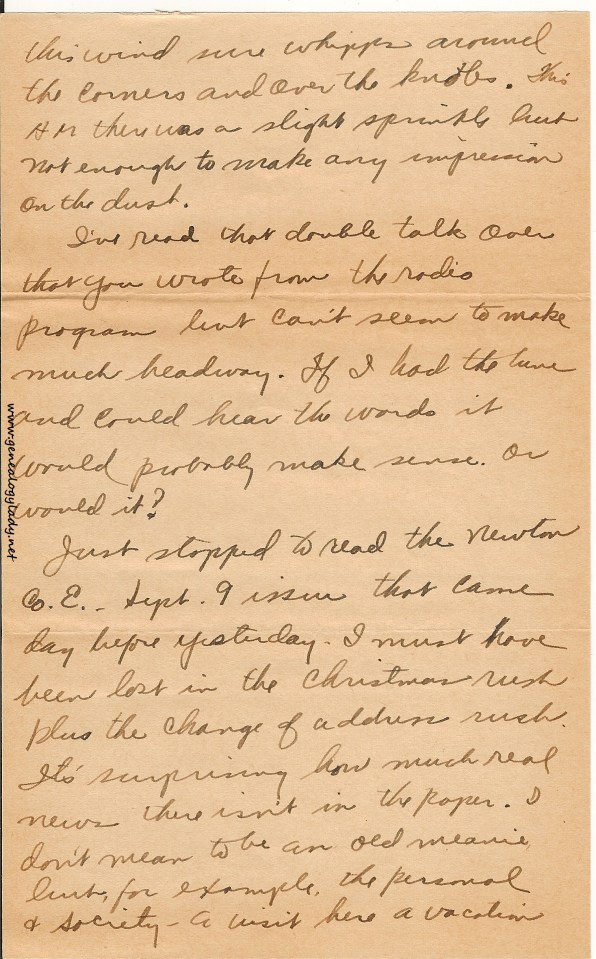 this wind sure whipps around
the corners and over the knobs. This
AM there was a slight sprinkle but
not enough to make any impression
on the dust.
I've read that double talk over
that you wrote from the radio
program but can't seem to make
much headway. If I had the tune
and could hear the words it
would probably make sense. Or
would it?
Just stopped to read the Newton
Co. E. - Sept. 9 issue that came
day before yesterday - I must have
been lost in the Christmas rush
plus the change of address rush.
It's surprising how much real
news there isn't in the paper. I
don't mean to be an old meanie
but, for example, the personal
& society - a visit here a vacation
www.genealogylady.net